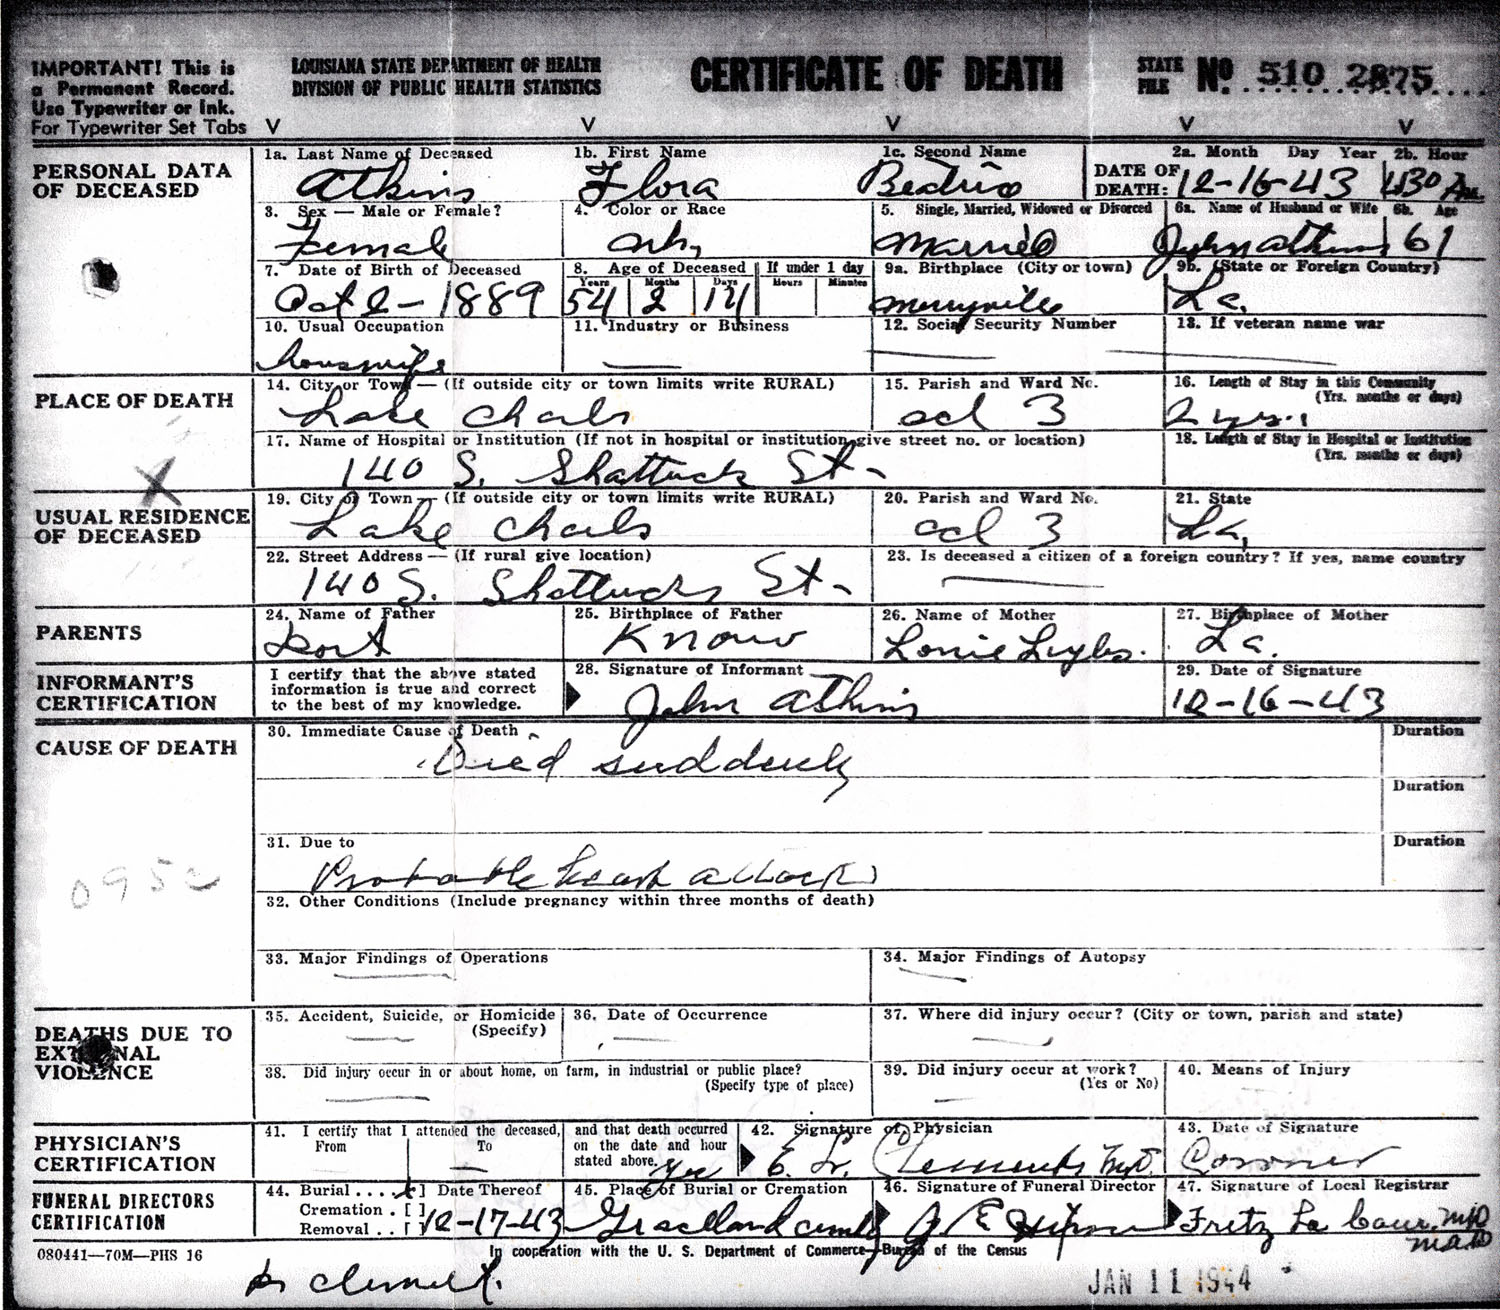 IMPORTANT! This is
a Permanent Record.
Use Typewriter or Ink.
For Typewriter Set Tabs V V V V V
LOUISIANA STATE DEPARTMENT OF HEALTH
DIVISION OF PUBLIC HEALTH STATISTICS
CERTIFICATE OF DEATH
STATE FILE No. 510 2875
PERSONAL DATA OF DECEASED
1a. Last Name of Deceased 1b. First Name 1c. Second Name 2a. Month Day Year 2b. Hour
Atkins Flora DATE OF DEATH: 12-16-43
3. Sex — Male or Female? 4. Color or Race 5. Single, Married, Widowed or Divorced 6a. Name of Husband or Wife 6b. Age
Female Married John Atkins 61
7. Date of Birth of Deceased 8. Age of Deceased If under 1 day 9a. Birthplace (City or town) 9b. (State or Foreign Country)
Years Months Days Hours Minutes
Oct 2 - 1889 54 2 14 Merryville La.
10. Usual Occupation 11. Industry or Business 12. Social Security Number 13. If veteran name war
housewife
PLACE OF DEATH
14. City or Town — (If outside city or town limits write RURAL) 15. Parish and Ward No. 16. Length of Stay in this Community
(Yrs. months or days)
Lake Charls cal 3 2 yrs.
17. Name of Hospital or Institution (If not in hospital or institution, give street no. or location) 18. Length of Stay in Hospital or Institution
(Yrs. months or days)
140 S. Shattuck St-
USUAL RESIDENCE OF DECEASED
19. City or Town — (If outside city or town limits write RURAL) 20. Parish and Ward No. 21. State
Lake Charls cal 3 La,
22. Street Address — (If rural give location) 23. Is deceased a citizen of a foreign country? If yes, name country
140 S. Shattuck St-
PARENTS
24. Name of Father 25. Birthplace of Father 26. Name of Mother 27. Birthplace of Mother
Dont Know La.
INFORMANT'S CERTIFICATION
I certify that the above stated
information is true and correct
to the best of my knowledge.
28. Signature of Informant 29. Date of Signature
John Atkins 12-16-43
CAUSE OF DEATH
30. Immediate Cause of Death Duration
Died suddenly
Duration
31. Due to Duration
Probable heart attack
0952
32. Other Conditions (Include pregnancy within three months of death)
33. Major Findings of Operations 34. Major Findings of Autopsy
DEATHS DUE TO EXTERNAL VIOLENCE
35. Accident, Suicide, or Homicide
(Specify)
36. Date of Occurrence 37. Where did injury occur? (City or town, parish and state)
38. Did injury occur in or about home, on farm, in industrial or public place?
(Specify type of place)
39. Did injury occur at work?
(Yes or No)
40. Means of Injury
PHYSICIAN'S CERTIFICATION
41. I certify that I attended the deceased,
From To
and that death occurred
on the date and hour
stated above. Yes
42. Signature of Physician 43. Date of Signature
Clements Coroner
FUNERAL DIRECTORS CERTIFICATION
44. Burial .... [x] Date Thereof
Cremation . [ ]
Removal .. [ ] 12-17-43
45. Place of Burial or Cremation 46. Signature of Funeral Director 47. Signature of Local Registrar
Graceland
080441—70M—PHS 16
In cooperation with the U. S. Department of Commerce—Bureau of the Census
JAN 11 1944